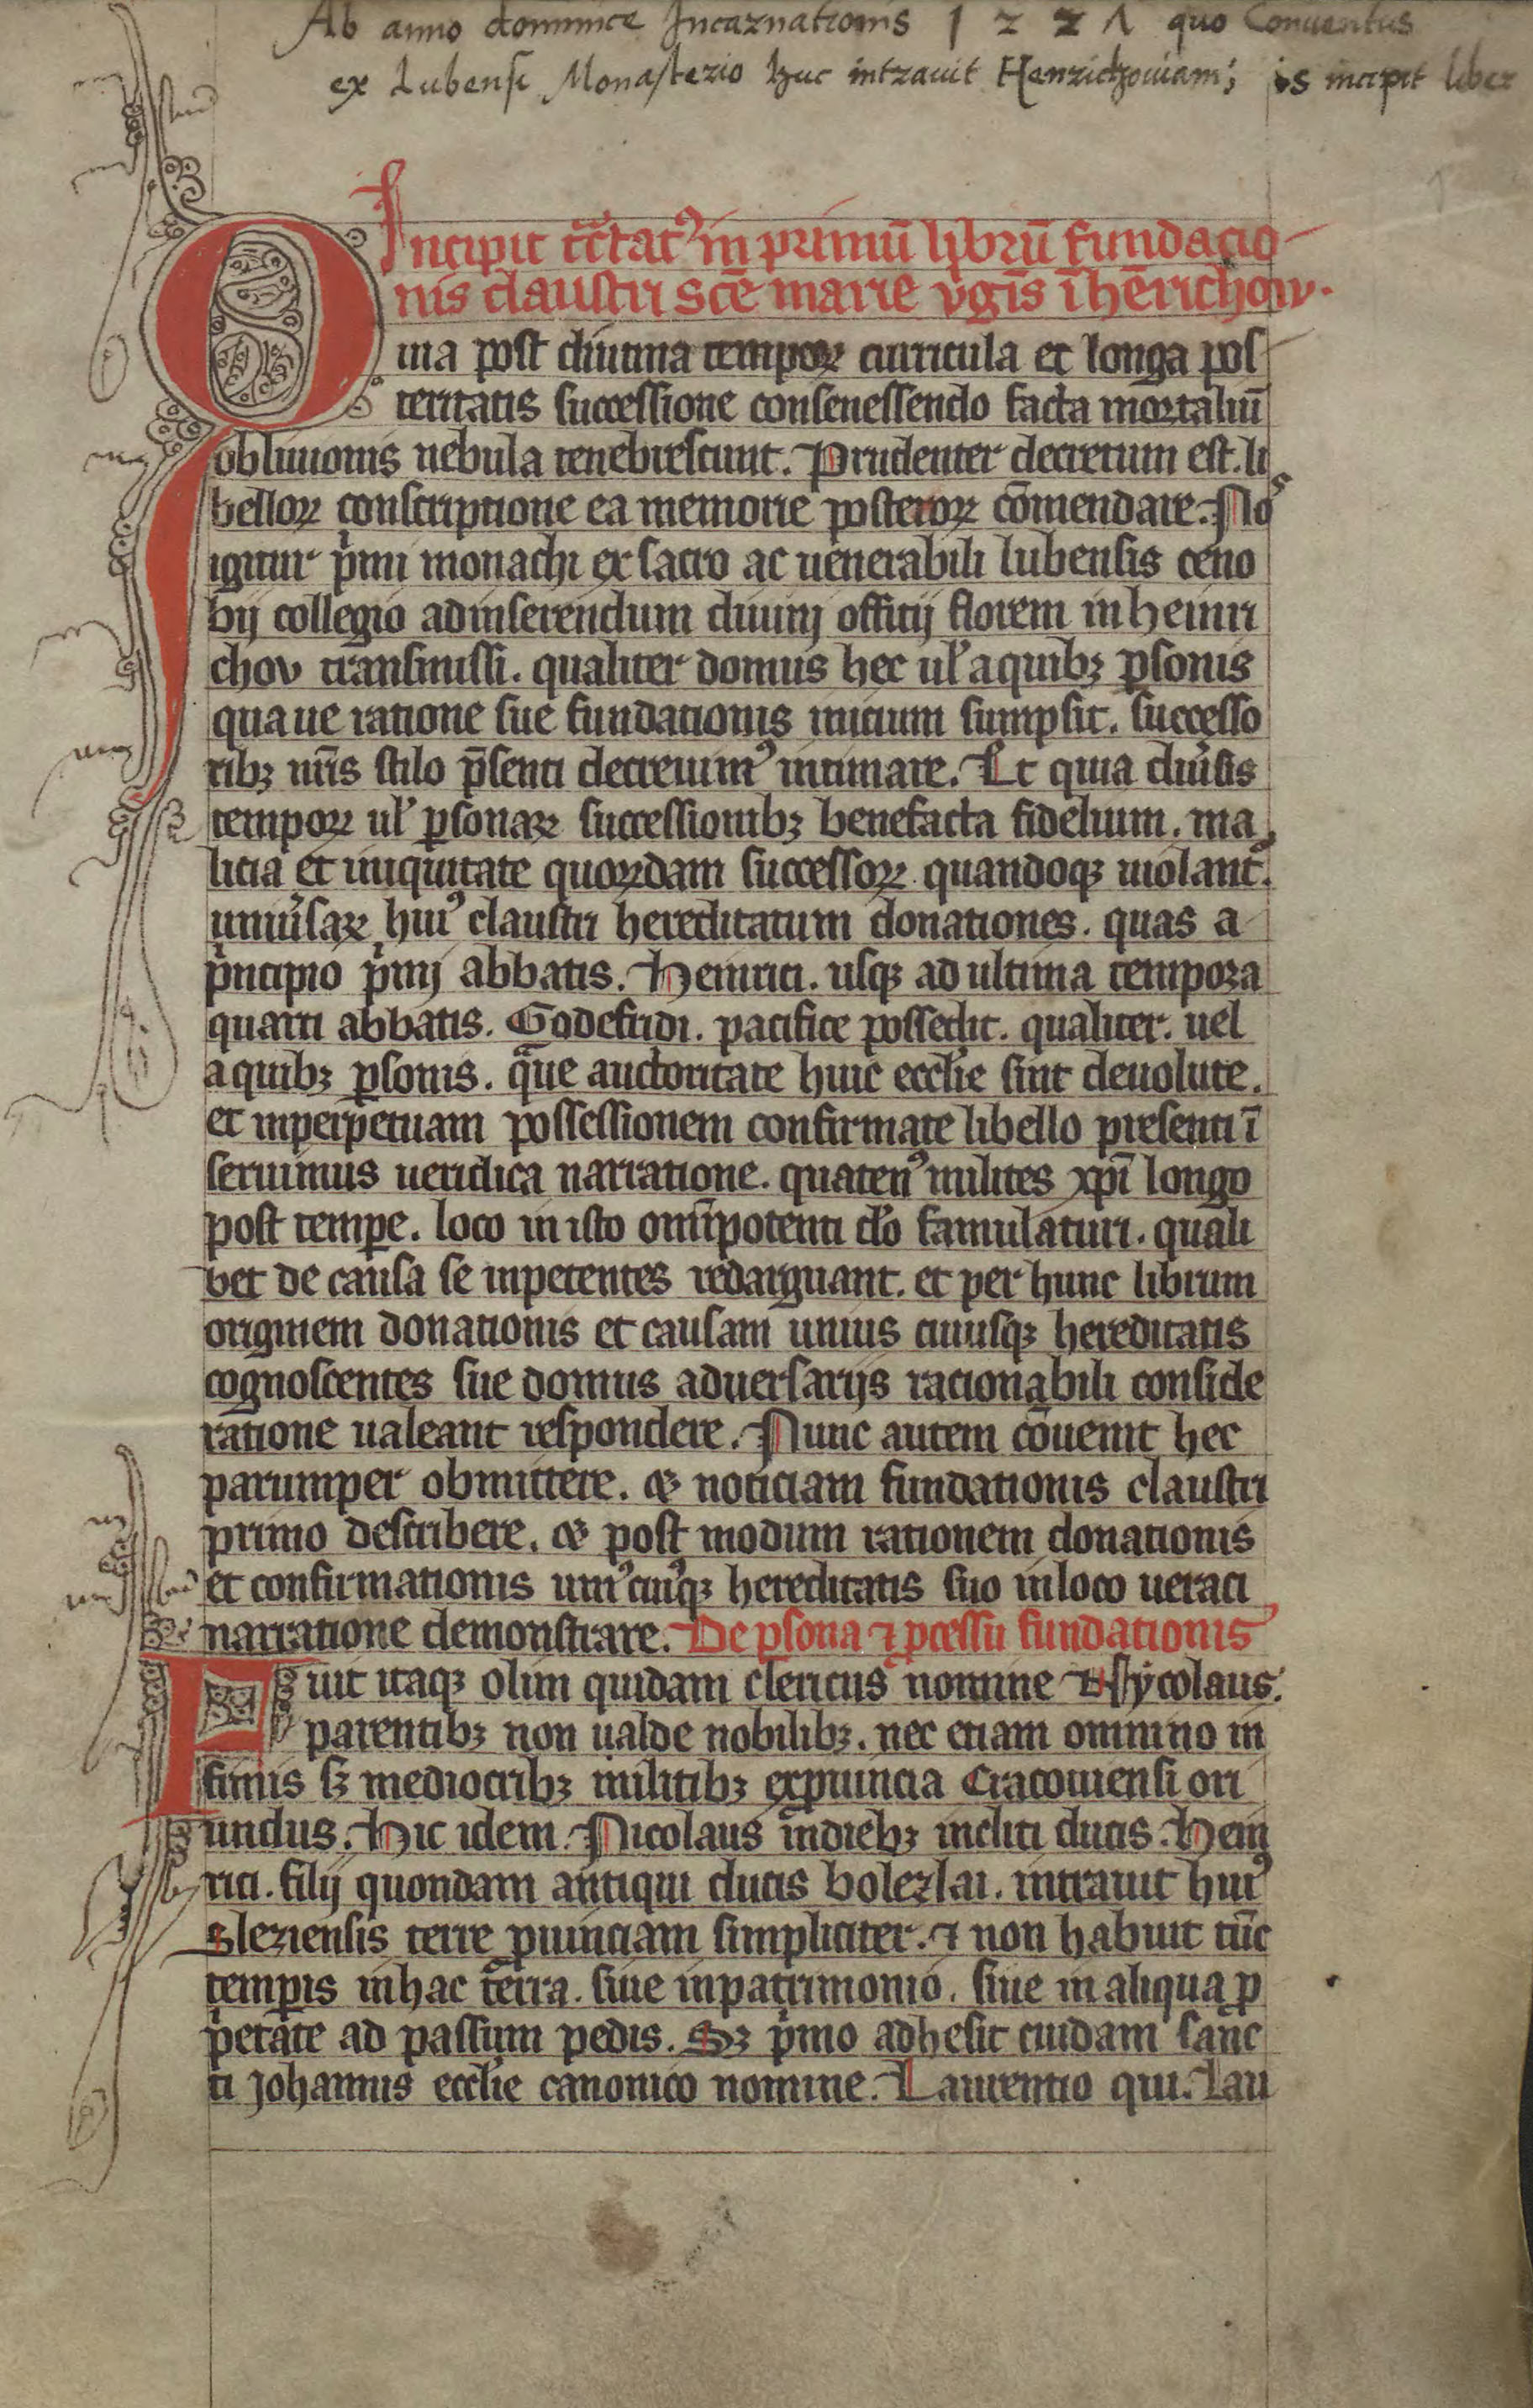 Ab anno dominice Incarnationis 1221 quo Conuentus
ex Lubensi Monasterio huc intrauit Henrichouiam; is incipit liber
Incipit tractatꝰ in primū librū fundacio
nis claustri sce̅ marie v̓gīs ī he̅richow.
Quia post diutina tempoꝝ curricula et longa pos
teritatis successione consenessendo facta mortaliū
obliuionis nebula tenebrescunt. Prudenter decretum est. li
belloꝝ conscriptione ea memorie posteroꝝ cōmendare. Noˢ
igitur pͥmi monachi ex sacro ac uenerabili lubensis ceno
bij collegio ad inserendum diuinj officij florem in heinri
chov transmissi. qualiter domus hec ul̓ a quibꝫ ꝑsonis
qua ue ratione sue fundationis inicium sumpsit. successo
ribꝫ nr̄is stilo p̄senti decreuimꝰ intimare. Et quia diu̓sis
tempoꝝ ul̓ ꝑsonaꝝ successionibꝫ benefacta fidelium. ma
licia et iniquitate quoꝝdam successoꝝ quandoqꝫ uiolant᷑.
uniu̓saꝝ huiꝰ claustri hereditatum donationes. quas a
pͥncipio pͥmj abbatis. Heinrici. usqꝫ ad ultima tempora
quarti abbatis. Godefridi. pacifice possedit. qualiter. uel
a quibꝫ ꝑsonis. qᵃue auctoritate huic eccl̓ie sint deuolute.
et in perpetuam possessionem confirmate libello presenti ī
seruimus ueridica narratione. quatenꝰ milites xp̄i longo
post tempe. loco in isto om̄ipotenti do̓ famulaturi. quali
bet de causa se inpetentes redarguant. et per hunc librum
originem donationis et causam unius cuiusqꝫ hereditatis
cognoscentes sue domus aduersarijs racionabili conside
ratione ualeant respondere. Nunc autem cōuenit hec
parumper obmittere. & noticiam fundationis claustri
primo describere. & post modum rationem donationis
et confirmationis uniꝰcuiꝰqꝫ hereditatis suo in loco ueraci
narratione demonstrare. De ꝑsona ⁊ ꝓcessu fundationis
Fuit itaqꝫ olim quidam clericus nomine Nycolaus.
parentibꝫ non ualde nobilibꝫ. nec etiam omnino in
fimis sꝫ mediocribꝫ militibꝫ ex ꝓuincia Cracouiensi ori
undus. Hic idem. Nicolaus in diebꝫ incliti ducis. Hein
rici. filij quondam antiqui ducis bolezlai. intrauit huiꝰ
sleziensis terre ꝓuinciam simpliciter. ⁊ non habuit tūc
temꝑis in hac terra. siue in patrimonio. siue in aliqua ꝓ
pͥetate ad passum pedis. Sꝫ pͥmo adhesit cuidam sanc
ti Johannis eccl̓ie canonico nomine. Laurentio qui. Lau